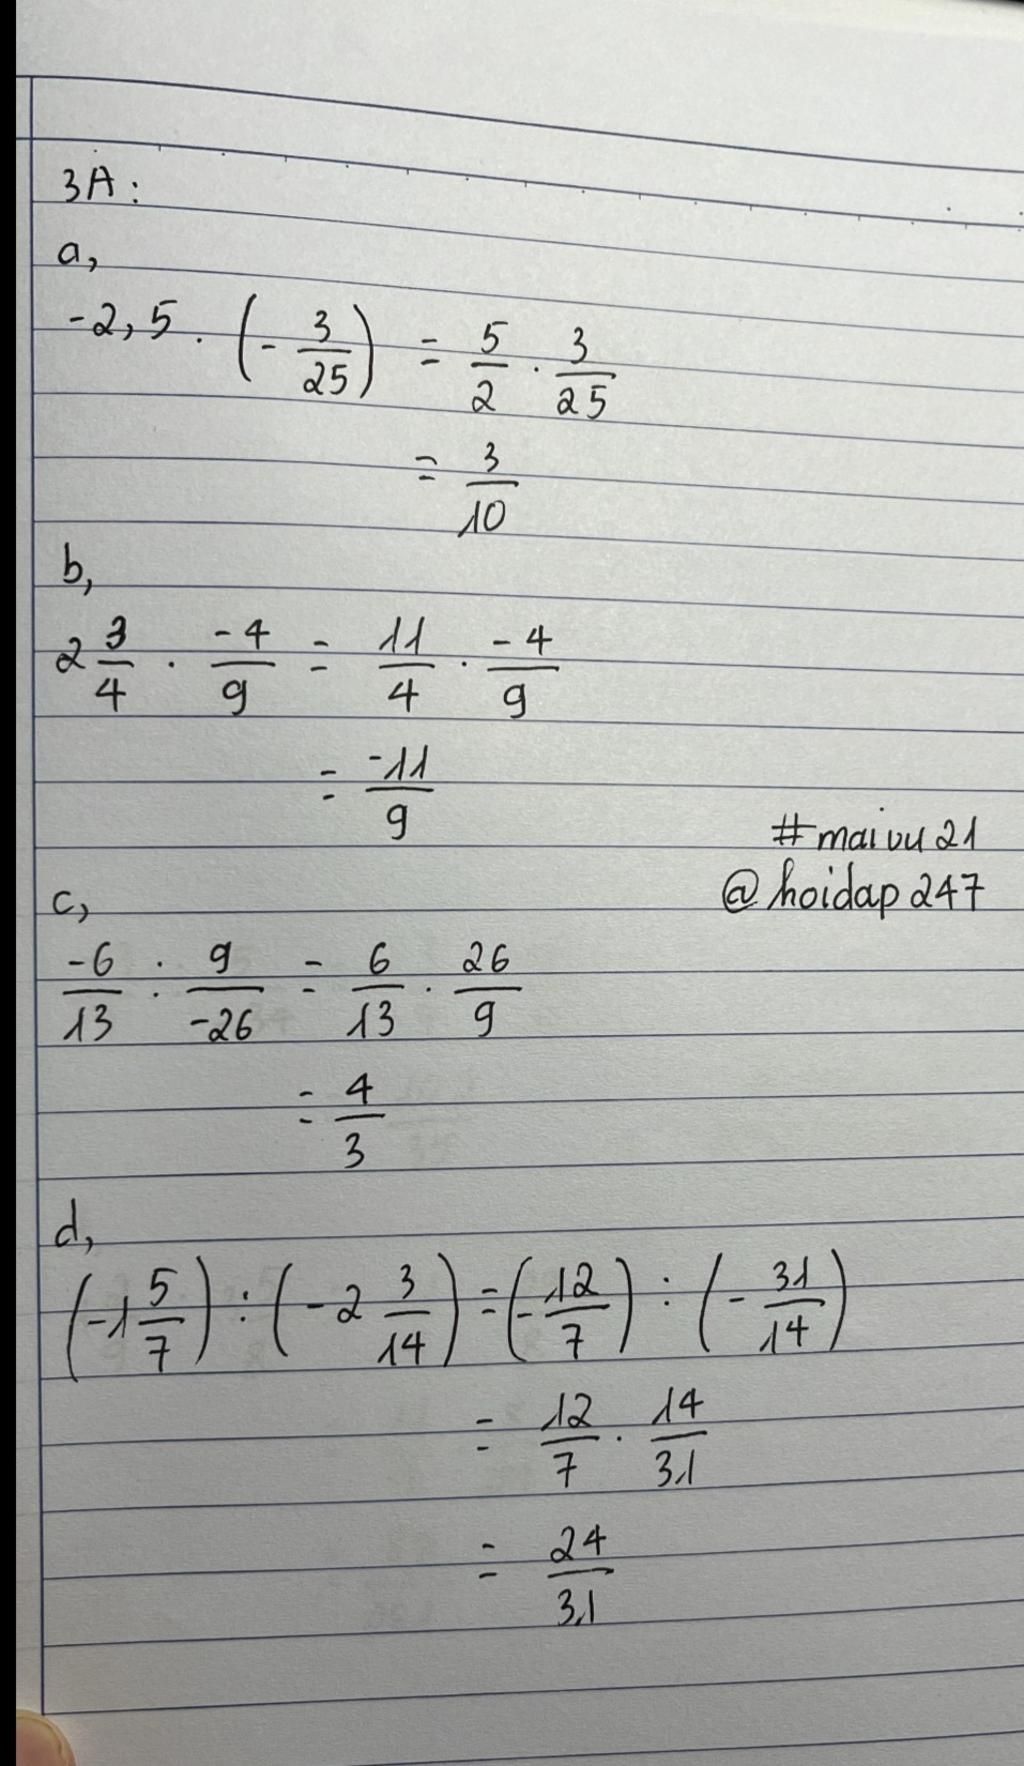 3A:
a,
-2,5 . (- 3/25) = 5/2 . 3/25
= 3/10
b,
2 3/4 . -4/9 = 11/4 . -4/9
= -11/9
#maivu21
@hoidap247
c,
-6/13 : 9/-26 = 6/13 . 26/9
= 4/3
d,
(-1 5/7) : (-2 3/14) = (- 12/7) : (- 31/14)
= 12/7 . 14/31
= 24/31